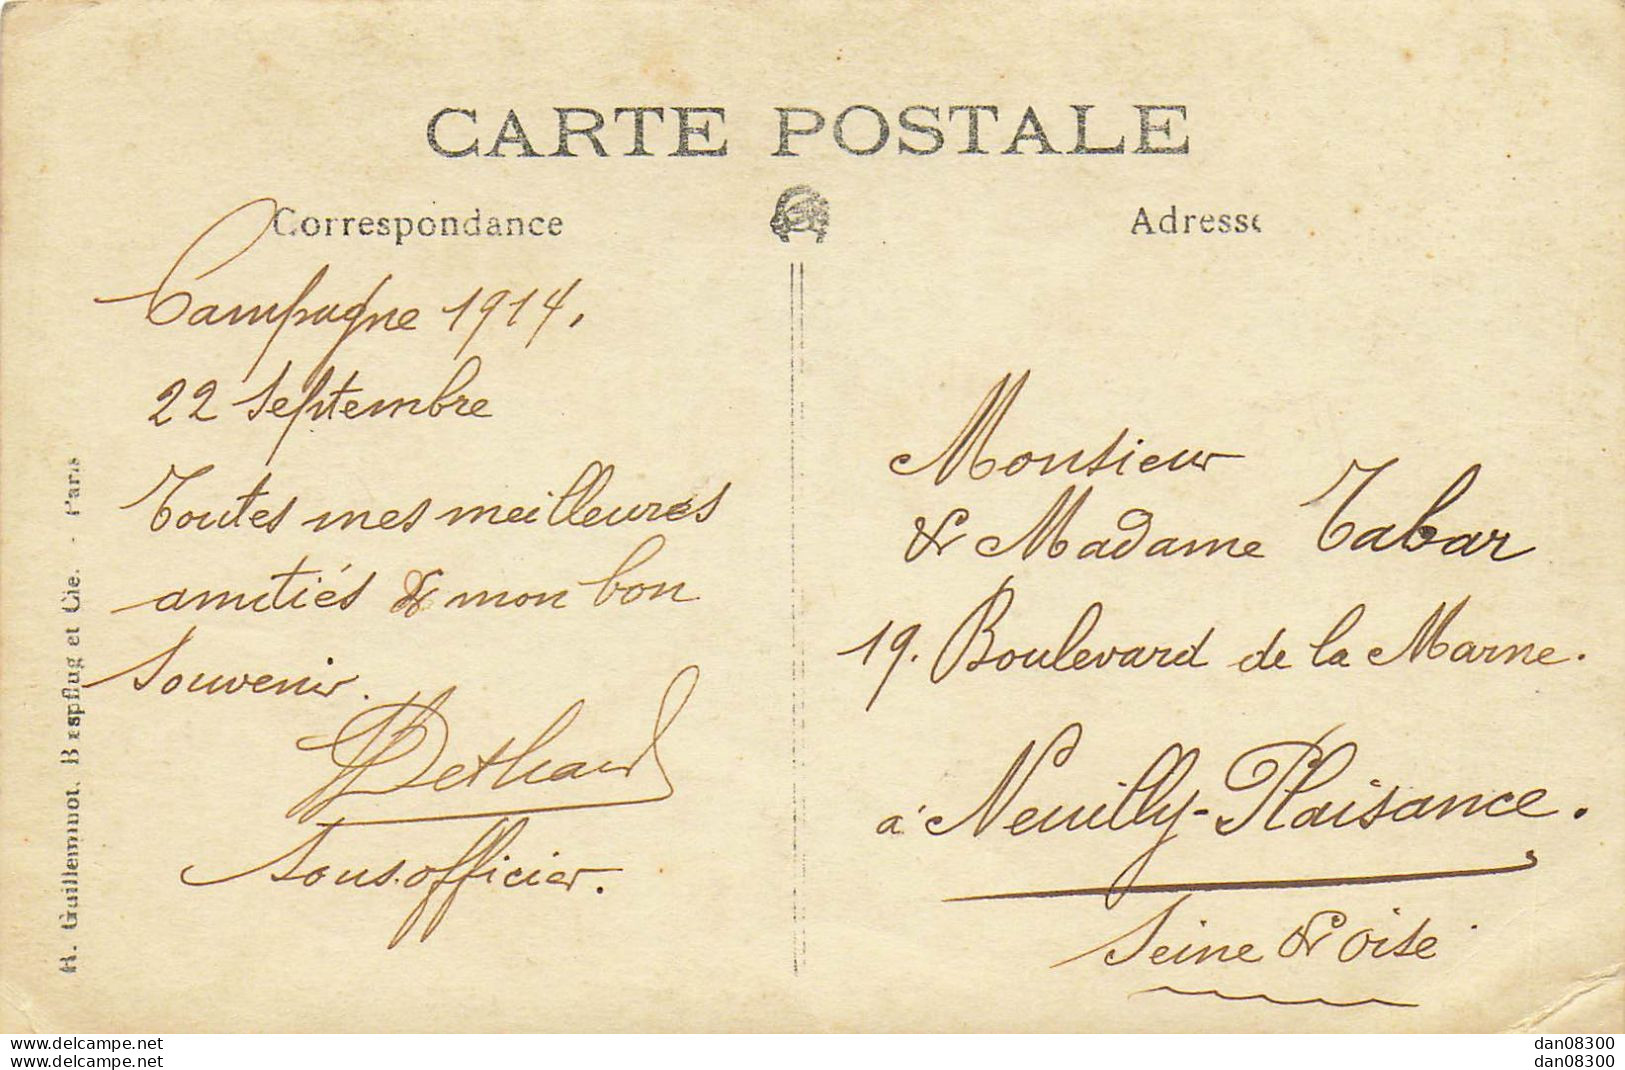 CARTE POSTALE
Correspondance
Adresse
Campagne 1914.
22 Septembre
Toutes mes meilleures
amitiés & mon bon
Souvenir.
Sous-officier.
Monsieur
& Madame Tabar
19. Boulevard de la Marne.
à Neuilly-Plaisance.
Seine & Oise
R. Guillemnot, Bespflug et Cie. - Paris
www.delcampe.net
www.delcampe.net
dan08300
dan08300